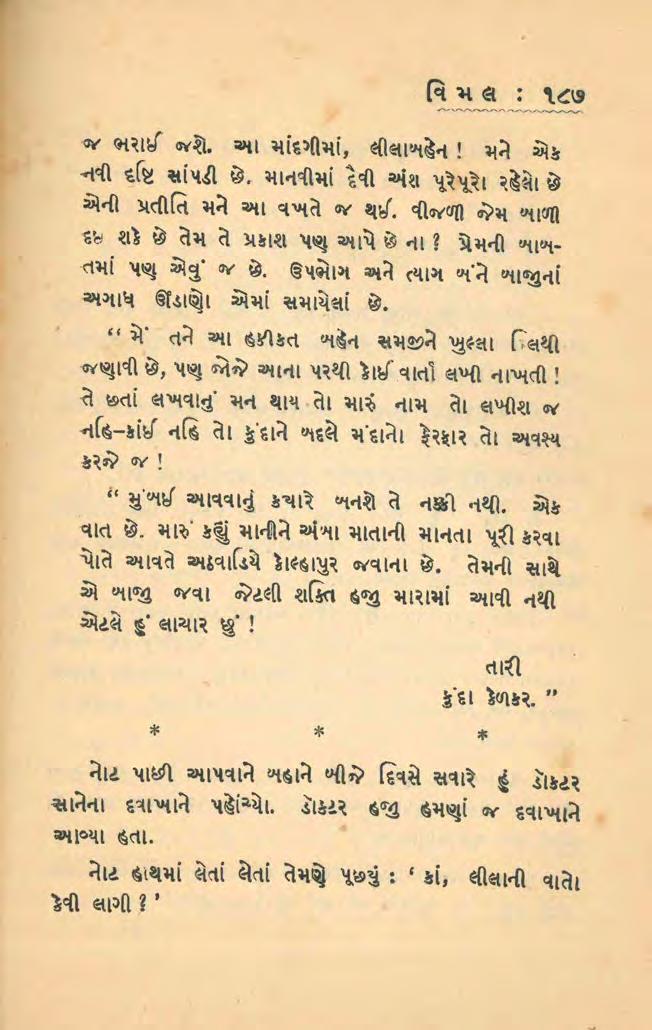 વિમલ : ૧૮૭
જ ભરાઈ જશે. આ માંદગીમાં, લીલાબહેન ! મને એક
નવી દૃષ્ટિ સાંપડી છે. માનવીમાં દૈવી અંશ પૂરેપૂરો રહેલો છે
એની પ્રતીતિ મને આ વખતે જ થઈ. વીજળી જેમ બાળી
દઇ શકે છે તેમ તે પ્રકાશ પણ આપે છે ના ? પ્રેમની બાબ-
તમાં પણ એવું જ છે. ઉપભોગ અને ત્યાગ બંને બાજુનાં
અગાધ ઊંડાણો એમાં સમાયેલાં છે.
“ મેં તને આ હકીકત બહેન સમજીને ખુલ્લા િલથી
જણાવી છે, પણ જોજે આના પરથી કોઈ વાર્તા લખી નાખતી !
તે છતાં લખવાનું મન થાય તો મારું નામ તો લખીશ જ
નહિ–કાંઈ નહિ તો કુંદાને બદલે મંદાનો ફેરફાર તો અવશ્ય
કરજે જ !
“ મુંબઈ આવવાનું કયારે બનશે તે નક્કી નથી. એક
વાત છે. મારું કહ્યું માનીને અંબા માતાની માનતા પૂરી કરવા
પોતે આવતે અઠવાડિયે કોલ્હાપુર જવાના છે. તેમની સાથે
એ બાજુ જવા જેટલી શક્તિ હજી મારામાં આવી નથી
એટલે હું લાચાર છું !
તારી
કુંદા કેળકર. ”
* * *
નોટ પાછી આપવાને બહાને બીજે દિવસે સવારે હું ડૉકટર
સાનેના દવાખાને પહોંચ્યો. ડૉકટર હજી હમણાં જ દવાખાને
આવ્યા હતા.
નોટ હાથમાં લેતાં લેતાં તેમણે પૂછયું : ‘ કાં, લીલાની વાતો
કેવી લાગી ? ’